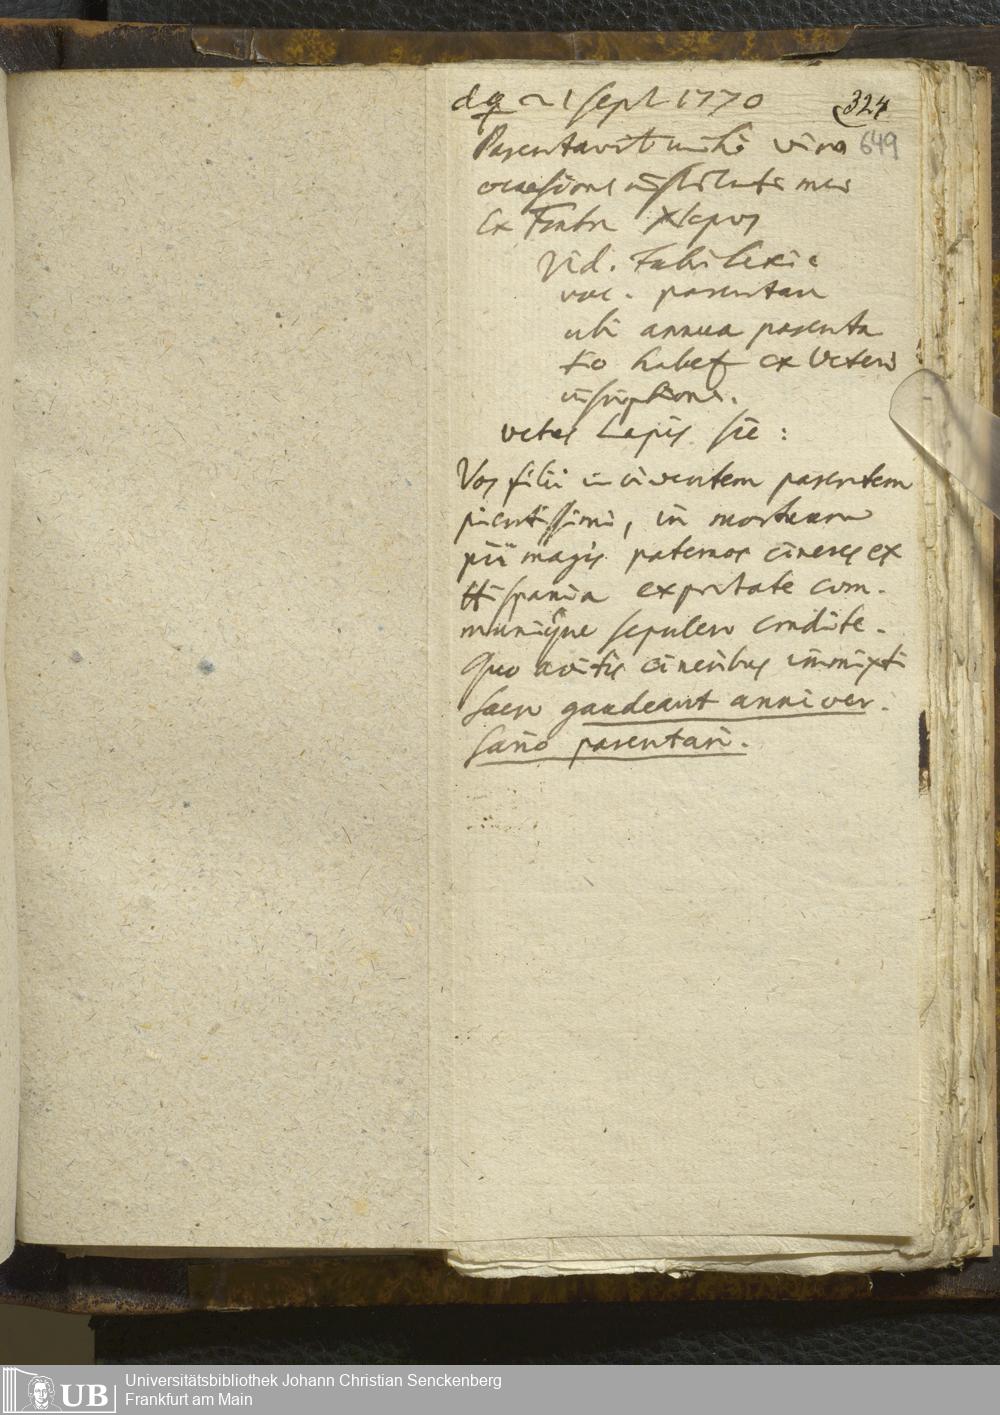 d 21 Sept 1770 324
Parentavit mihi vivo 649
occasione instituti mei
Ex Fratr
Vid. Fabri Lexic
voc. parentare
ubi annua parenta
tio habet ex Veteri
inscriptione.
vetus Lapis sic:
Vos filii in viventem parentem
pientissimi, in mortuum
pii magis paternos cineres ex
Hispania exportate com-
munique sepulcro condite.
Quo avitis cineribus immixti
sacro gaudeant anniver-
sario parentari.
UB
Universitätsbibliothek Johann Christian Senckenberg
Frankfurt am Main